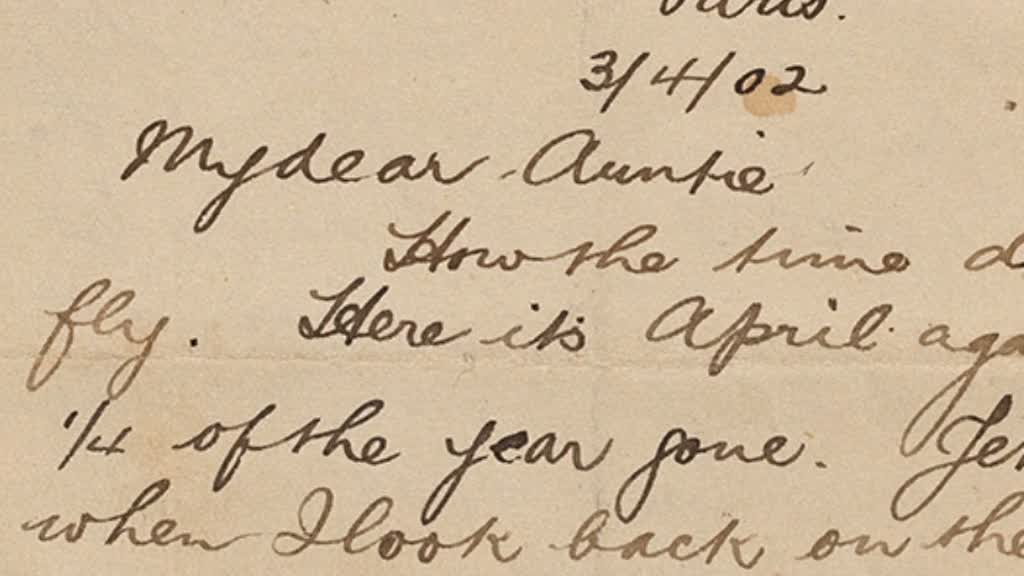 Paris.
3/4/02
My dear Auntie
How the time
fly. Here it's April
1/4 of the year gone.
when I look back on the